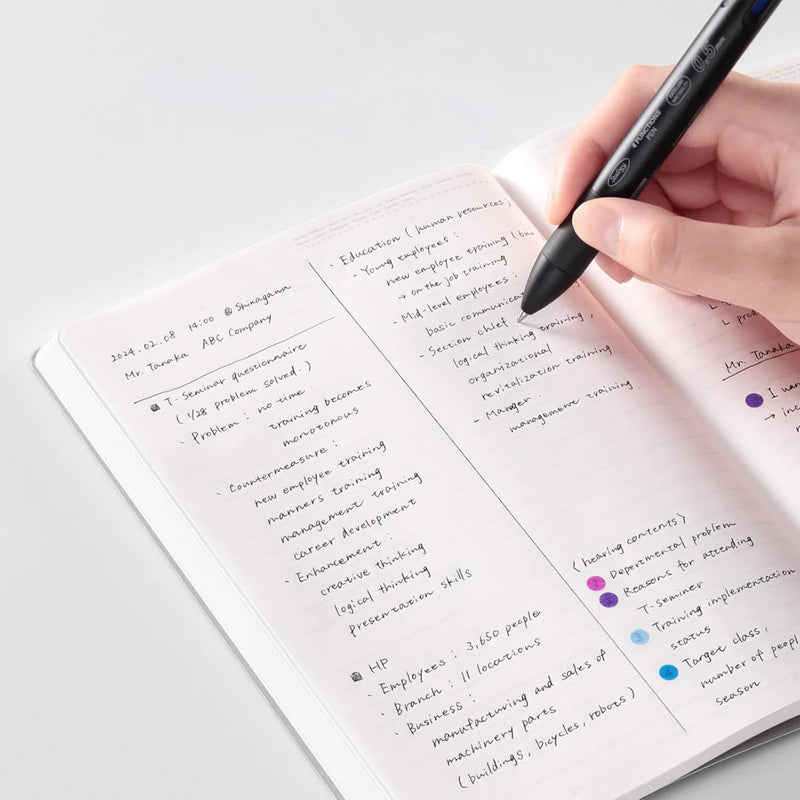 2024.02.08 14:00 @ Shinagawa
Mr. Tanaka ABC Company
T-Seminar questionnaire
( 1/28 problem solved. )
· Problem : no time
training becomes
monotonous
· Countermeasure :
new employee training
manners training
management training
career development
· Enhancement :
creative thinking
logical thinking
presentation skills
HP
· Employees : 3,650 people
· Branch : 11 locations
· Business :
manufacturing and sales of
machinery parts
( buildings, bicycles, robots )
· Education ( human resources )
- Young employees :
new employee training
→ on the job training
- Mid-level employees :
basic
- Section chief
logical thinking training,
organizational
revitalization training
- Manger :
management training
< hearing contents >
1 Departmental problem
2 Reasons for attending
T-seminer
3 Training implementation
status
4 Target class,
number of
season
Mr. Tanaka
I
→
4 FUNCTIONS
PEN
0.5 mm